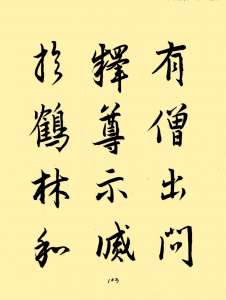 有僧出問
釋尊示滅
於鶴林和